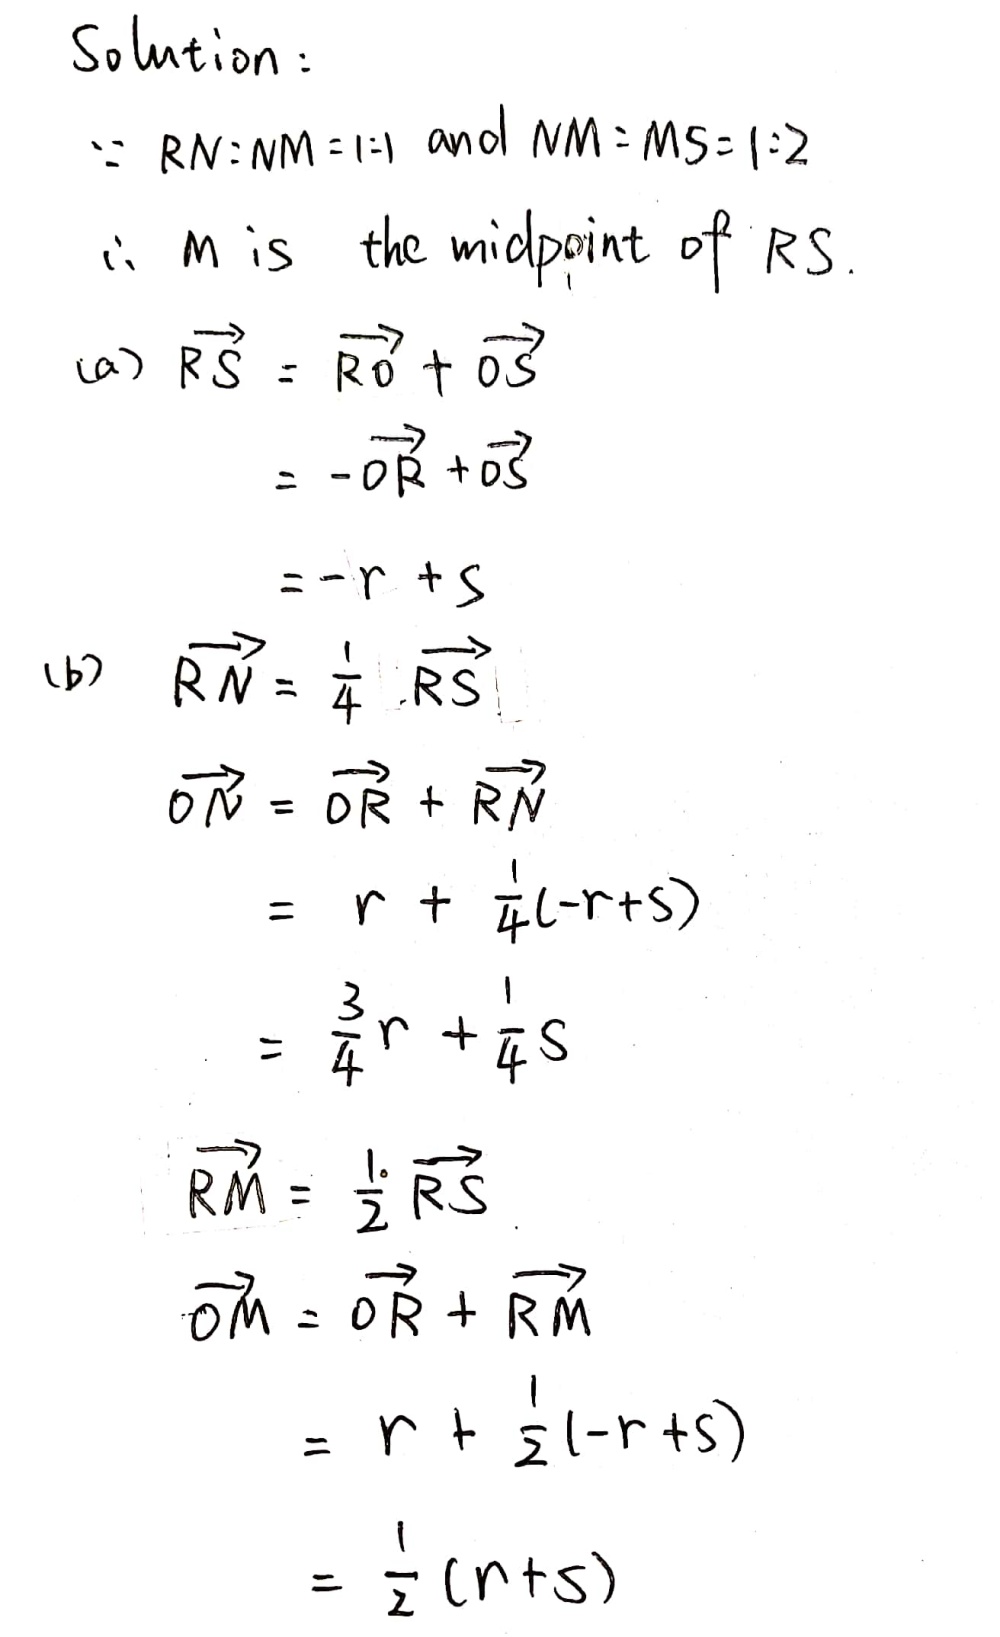 Solution:
∵ RN:NM=1:1 and NM:MS=1:2
∴ M is the midpoint of RS.
(a) $\overrightarrow{RS}$ = $\overrightarrow{RO}$ + $\overrightarrow{OS}$
= -$\overrightarrow{OR}$ + $\overrightarrow{OS}$
= -r + s
(b) $\overrightarrow{RN}$ = $\frac{1}{4}$ $\overrightarrow{RS}$
$\overrightarrow{ON}$ = $\overrightarrow{OR}$ + $\overrightarrow{RN}$
= r + $\frac{1}{4}$(-r+s)
= $\frac{3}{4}$r + $\frac{1}{4}$s
$\overrightarrow{RM}$ = $\frac{1}{2}$ $\overrightarrow{RS}$
$\overrightarrow{OM}$ = $\overrightarrow{OR}$ + $\overrightarrow{RM}$
= r + $\frac{1}{2}$(-r+s)
= $\frac{1}{2}$(r+s)